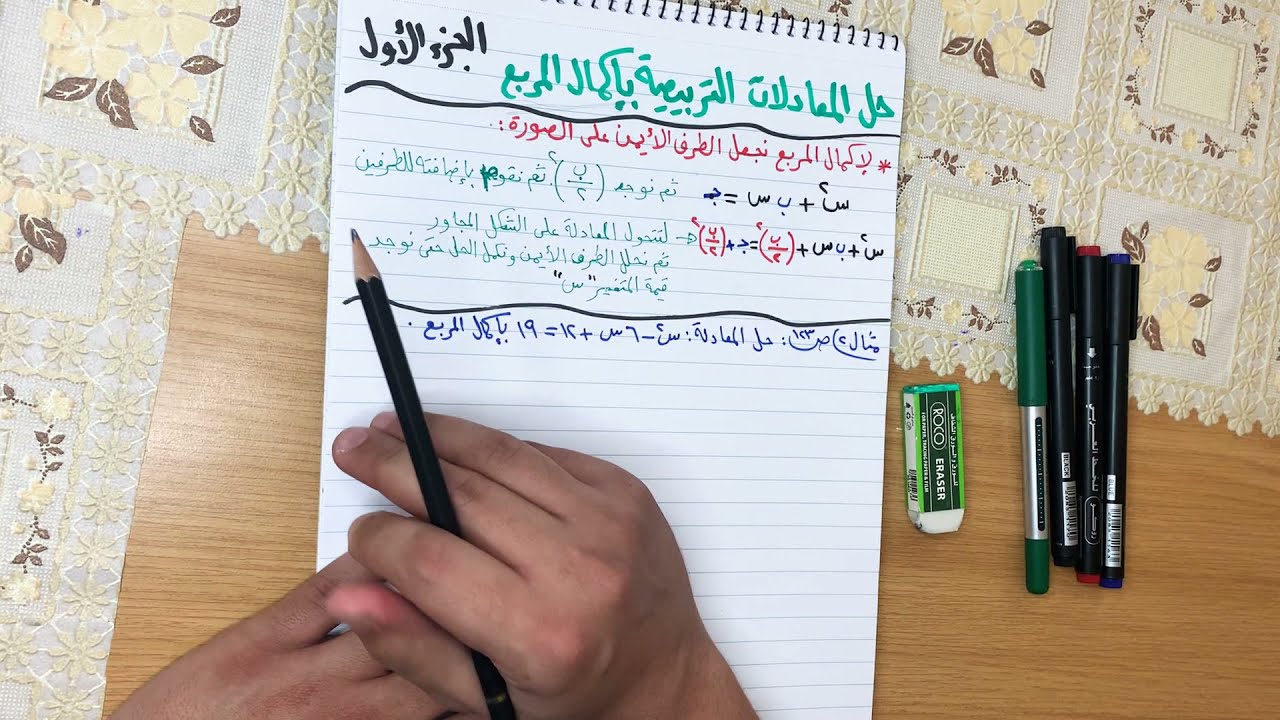 الجزء الأول
حل المعادلات التربيعية بإكمال المربع
* لإكمال المربع نجعل الطرف الأيمن على الصورة :
س² + ب س = جـ ثم نوجد (ب/٢)² ثم نقوم بإضافته للطرفين
س² + ب س + (ب/٢)² = جـ + (ب/٢)² لتتحول المعادلة على الشكل المجاور
ثم نحلل الطرف الأيمن ونكمل الحل حتى نوجد
قيمة المتغير "س"
مثال ٢) ص ١٢٣ : حل المعادلة : س² − ٦ س + ١٢ = ١٩ بإكمال المربع .
ROCO ERASER
FOR PAPER, TRACING PAPER & FILM
BLACK
BLUE